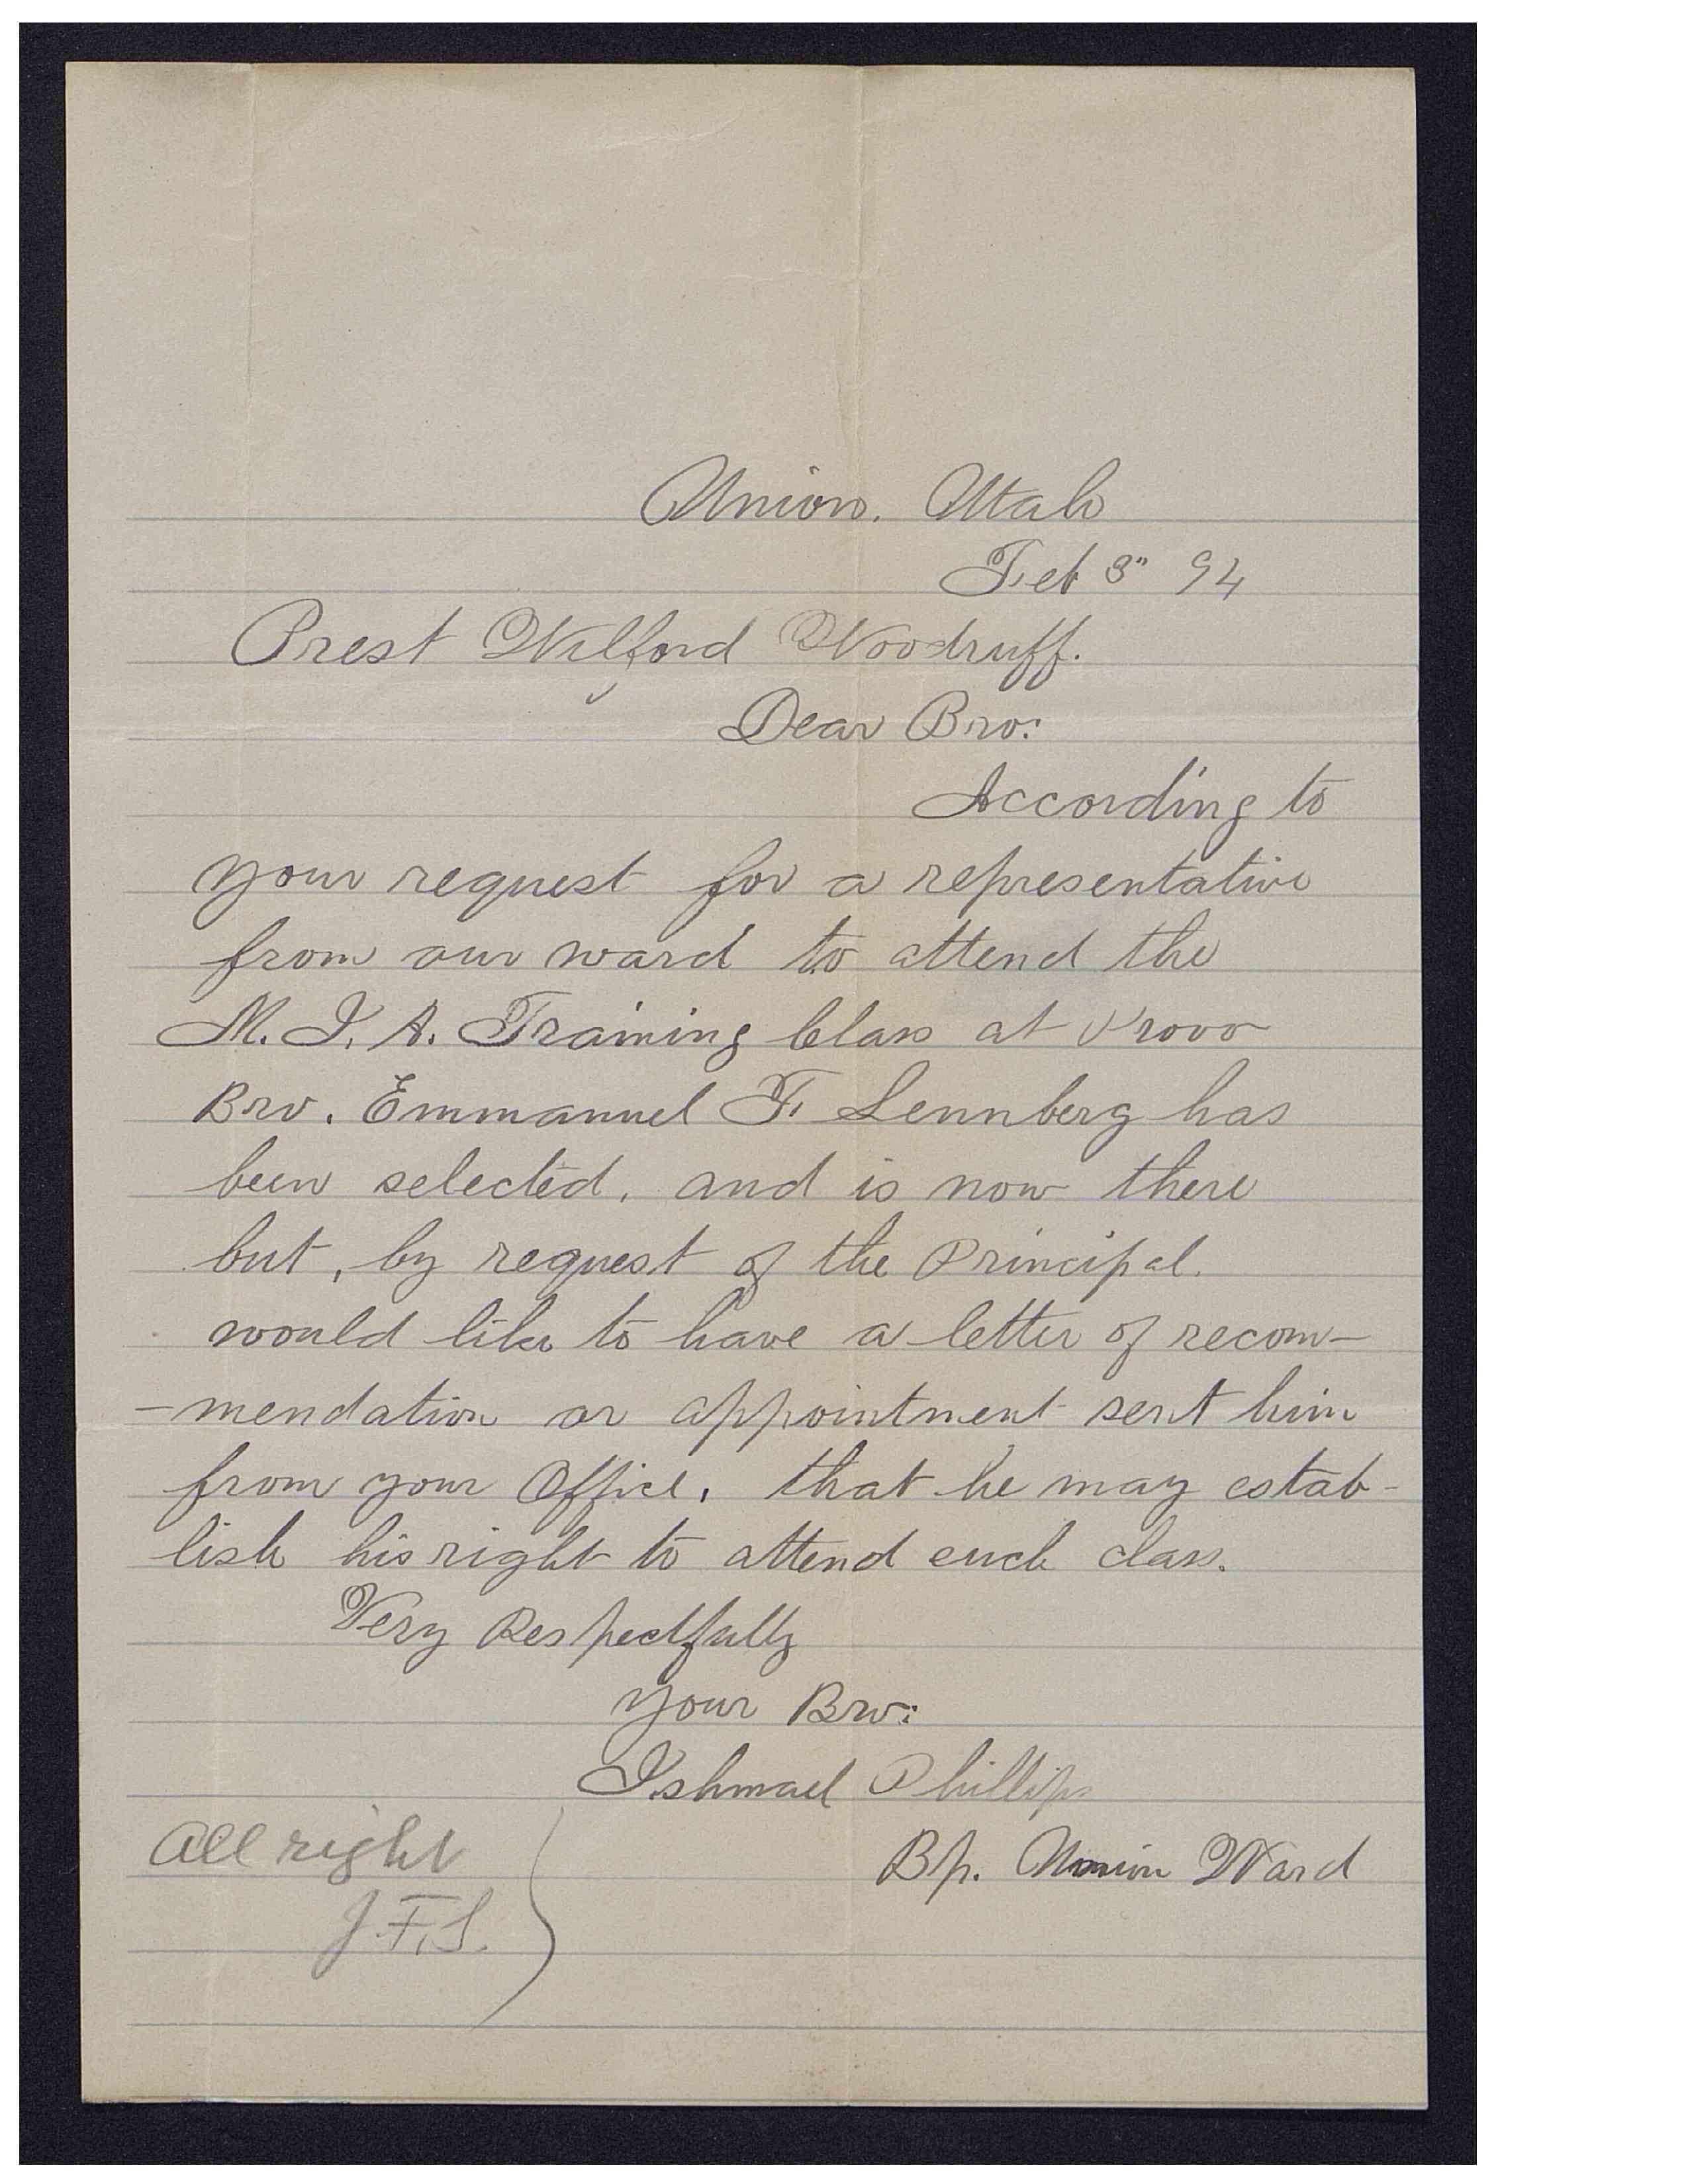 Union. Utah
Feb 3" 94
Prest Wilford Woodruff.
Dear Bro:
According to
your request for a representative
from our ward to attend the
M. I. A. Training Class at Provo
Bro. Emmanuel F. Lennberg has
been selected, and is now there
but, by request of the Principal.
would like to have a letter of recom-
-mendation or appointment sent him
from your Office, that he may estab-
lish his right to attend such class.
Very Respectfully
Your Bro:
Ishmael Phillips
Bp. Union Ward
All right
J. F. S.